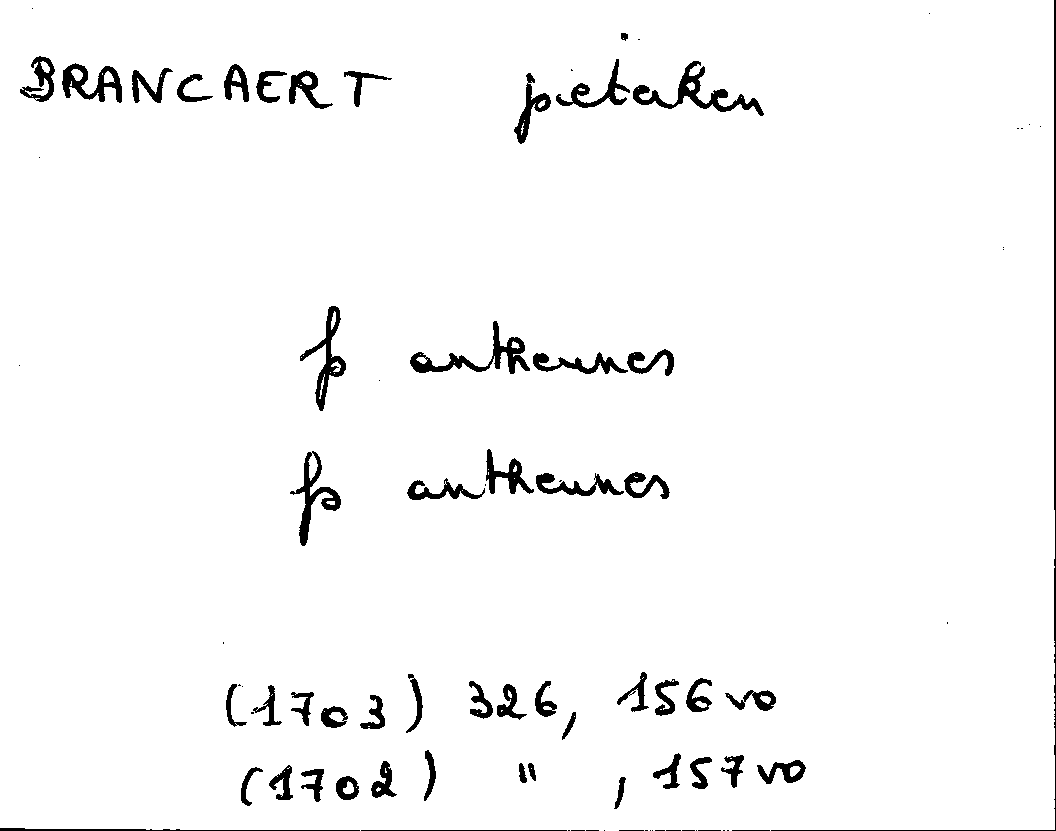 BRANCAERT pietaken
fs antheunes
fs antheunes
(1703) 326, 156 vo
(1702) " , 157 vo